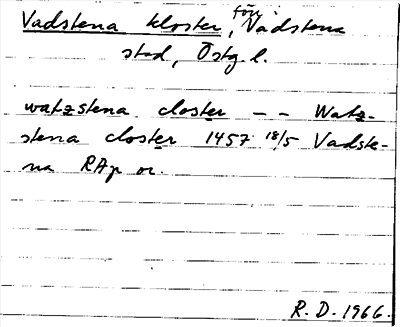 Vadstena kloster, förr Vadstena
stad, Östg.l.
watzstena closter -- Watz-
stena closter 1457 18/5 Vadste-
na RAp or.
R.D. 1966.